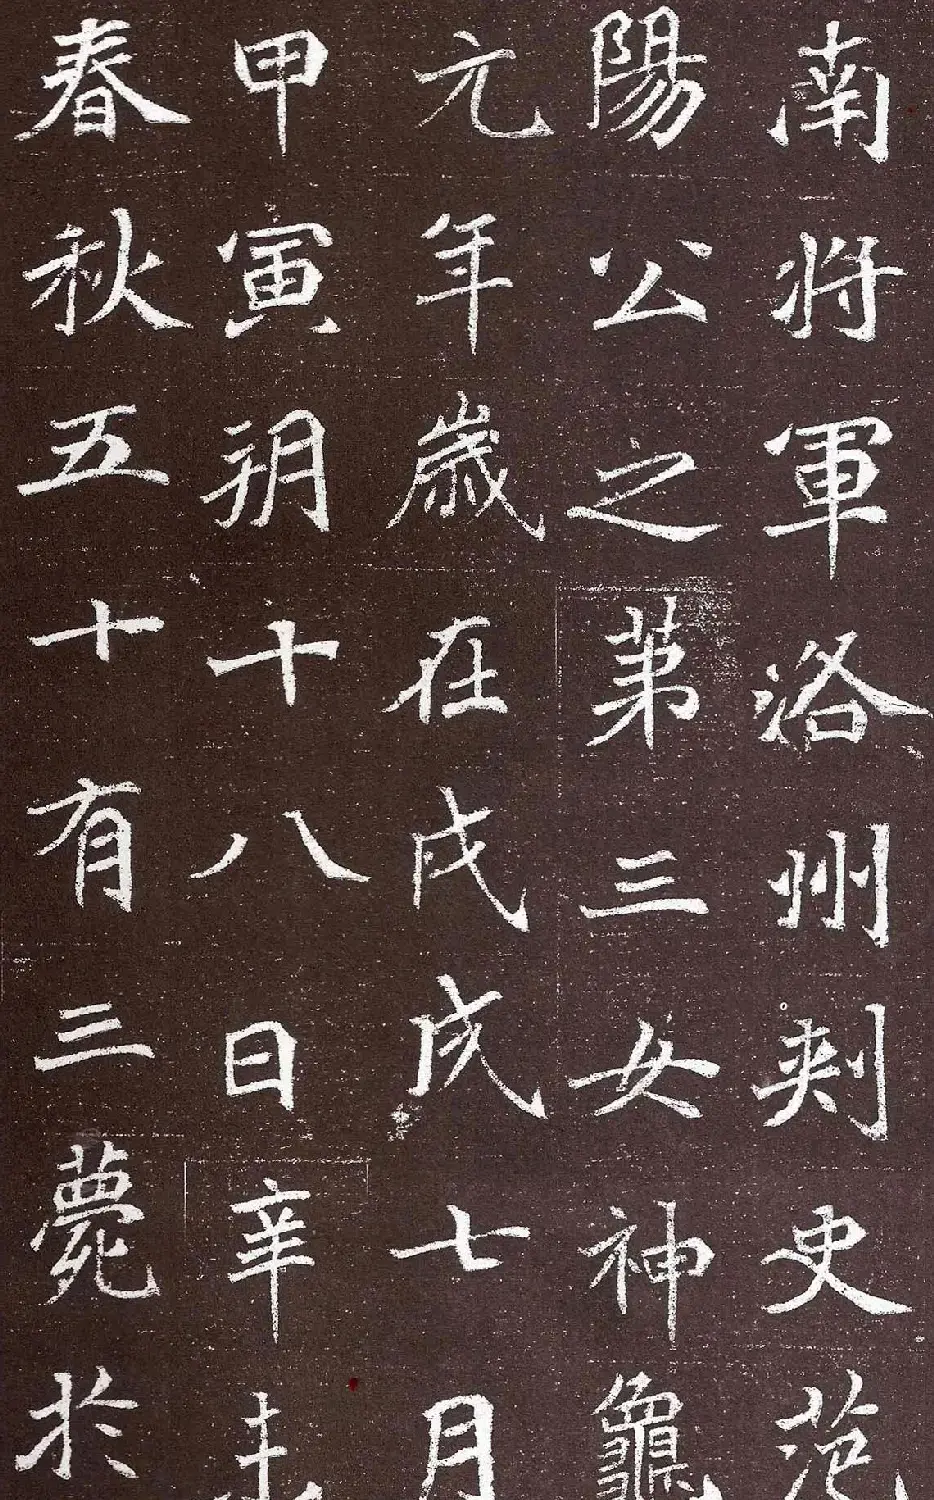 南將軍洛州刾史范
陽公之苐三女神龜
元年歲在戊戌七月
甲寅朔十八日辛未
春秋五十有三薨於